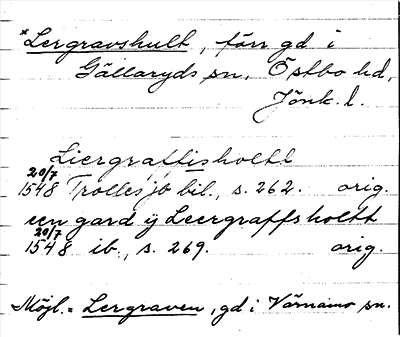 *Lergravshult, förr gd i
Gällaryds sn, Östbo hd,
Jönk. l.
Liergraffisholtt
20/7 1548 Trolles jb bil., s. 262. orig.
een gard ij Leergraffsholtt
20/7 1548 ib., s. 269. orig.
Möjl. = Lergraven, gd i Värnamo sn.